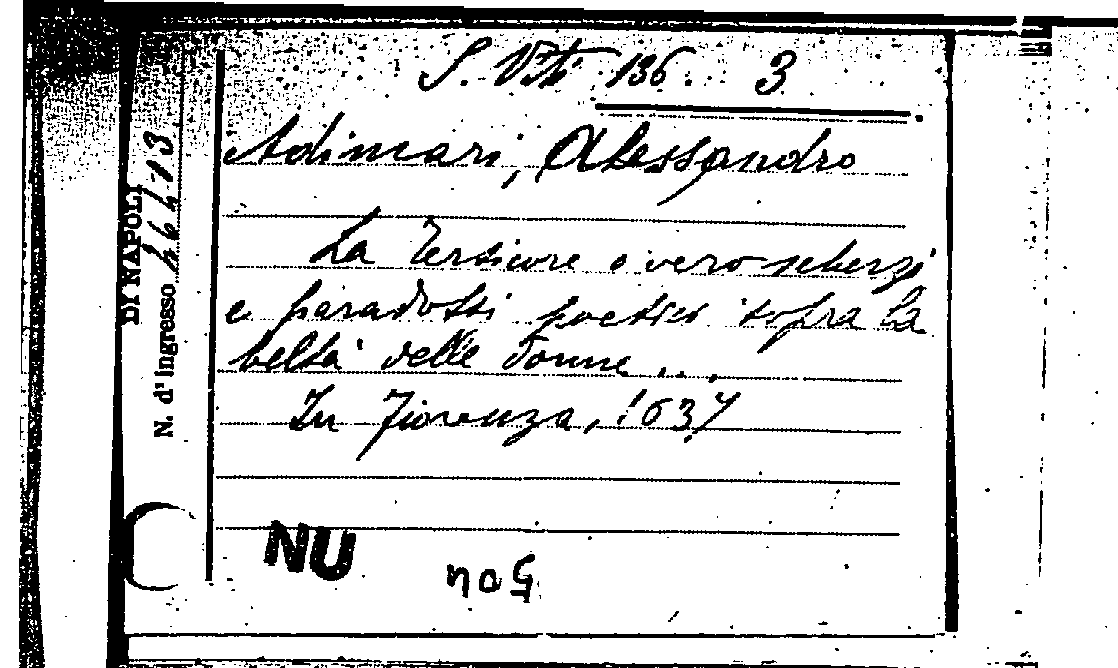 S. Viti 136. 3
Adimari, Alessandro
La Tersicore o vero scherzi
e paradossi poetici sopra la
beltà delle donne ...
In Fiorenza, 1637
NU
DI NAPOLI
N. d'Ingresso